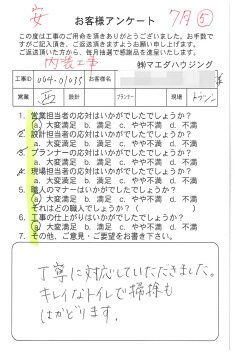 安 お客様アンケート 7月⑤
この度は工事のご用命を頂きありがとうございました。お手数で
すがご記入頂き、ご返送頂きますようお願い申し上げます。
ご返送頂いた方から、毎月抽選で感謝品を進呈いたします。
内装工事 ㈱マエダハウジング
工事ID U04-01035 お客様名
営業 設計 プランナー 現場
1. 営業担当者の応対はいかがでしたでしょうか?
a. 大変満足 b. 満足 c. やや不満 d. 不満
2. 設計担当者の応対はいかがでしたでしょうか?
a. 大変満足 b. 満足 c. やや不満 d. 不満
3. プランナーの応対はいかがでしたでしょうか?
a. 大変満足 b. 満足 c. やや不満 d. 不満
4. 現場担当者の応対はいかがでしたでしょうか?
a. 大変満足 b. 満足 c. やや不満 d. 不満
5. 職人のマナーはいかがでしたでしょうか?
a. 大変満足 b. 満足 c. やや不満 d. 不満
それはどの職人でしょうか?( )
6. 工事の仕上がりはいかがでしたでしょうか?
a. 大変満足 b. 満足 c. やや不満 d. 不満
7. その他、ご意見・ご要望をお書き下さい。
丁寧に対応していただきました。
キレイなトイレで掃除も
はかどります。